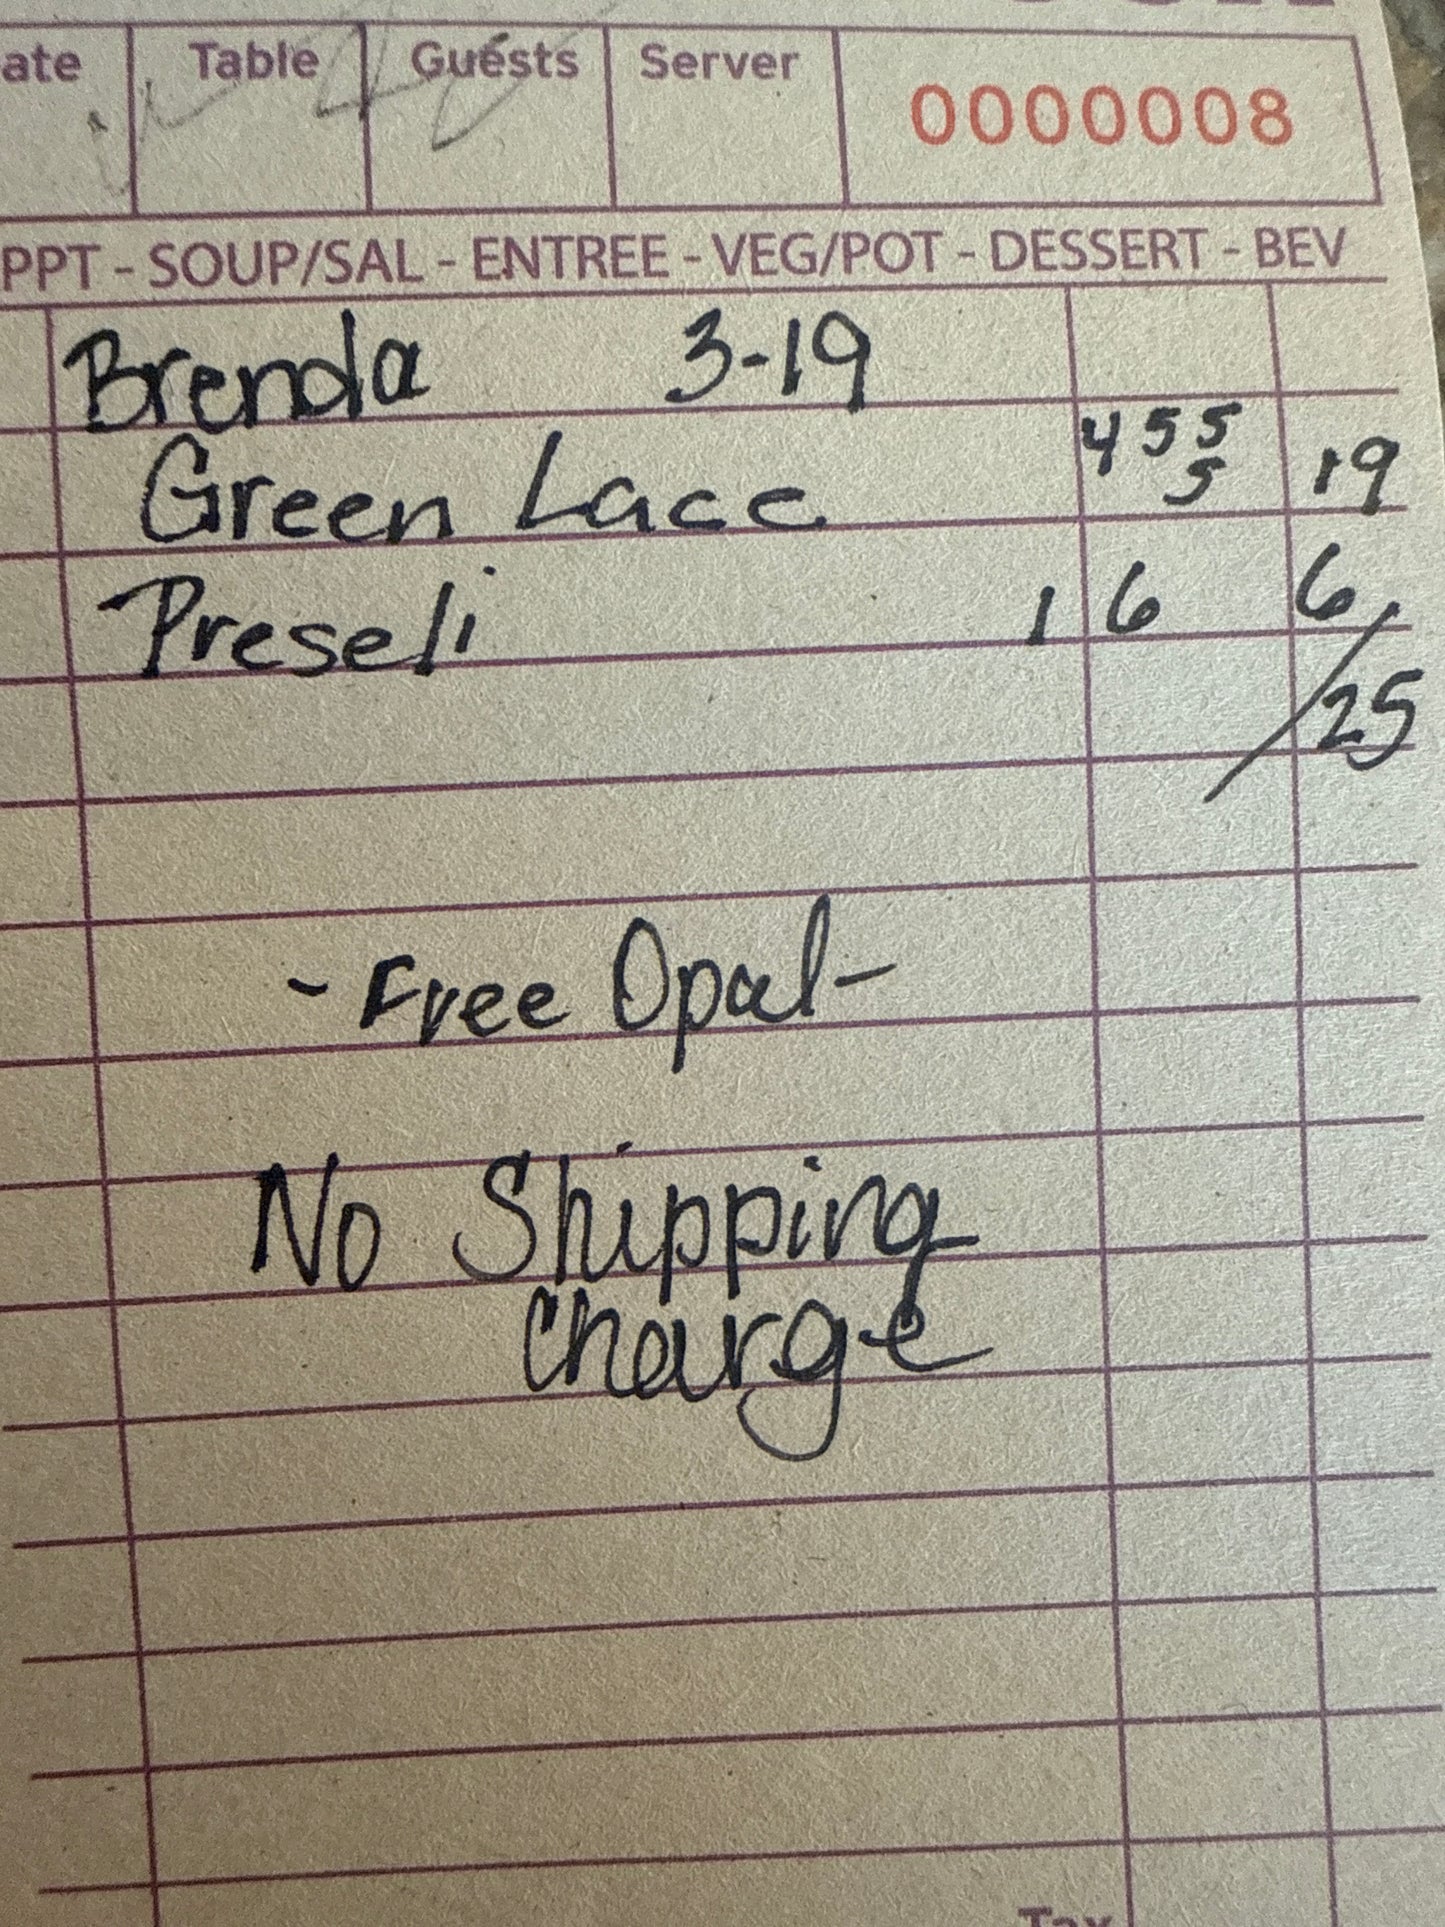 ate Table Guests Server 0000008
PPT - SOUP/SAL - ENTREE - VEG/POT - DESSERT - BEV
Brenda 3-19
Green Lace 4 5 5 5 19
Preseli 1 6 6
25
- Free Opal -
No Shipping
Charge
Tax